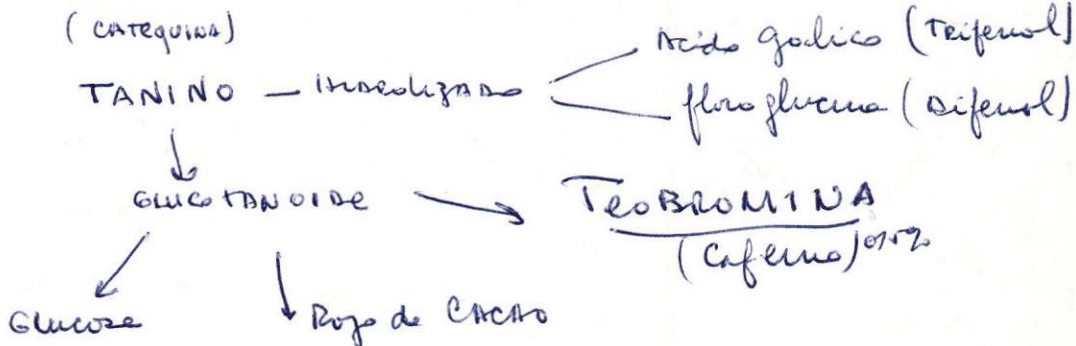 (CATEQUINA)
TANINO — HIDROLIZADO
Acido Galico (Trifenol)
floroglucina (Difenol)
GLUCOTANOIDE
TEOBROMINA
(Cafeina)
Glucose
Rojo de CACAO